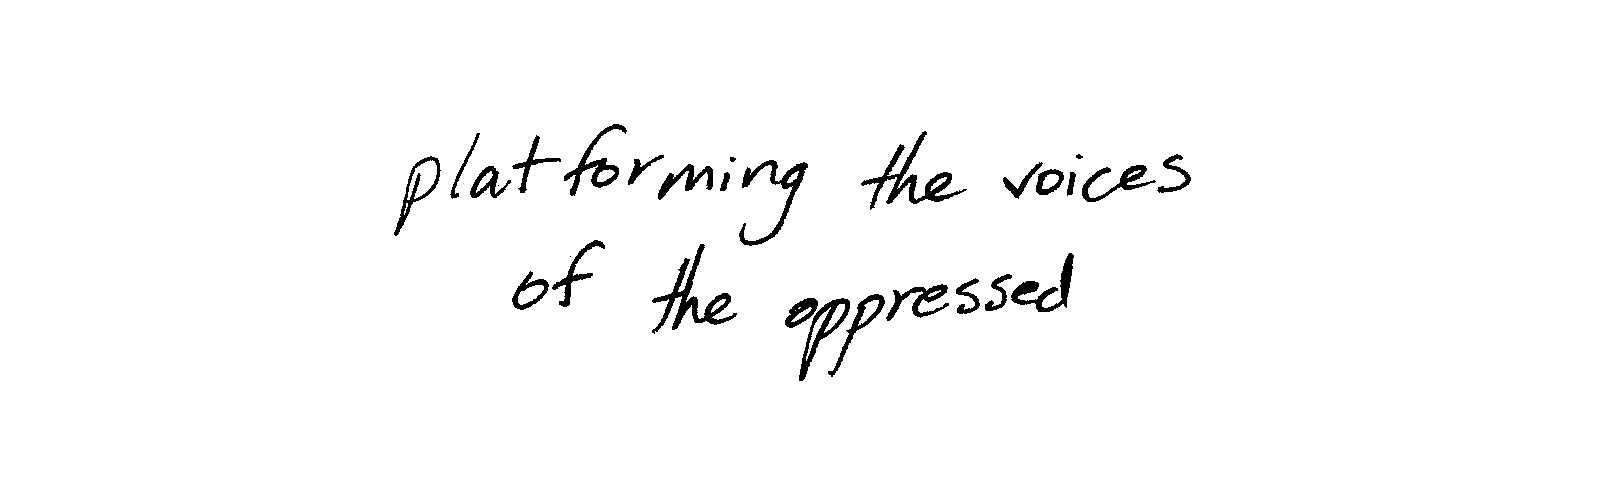 platforming the voices
of the oppressed